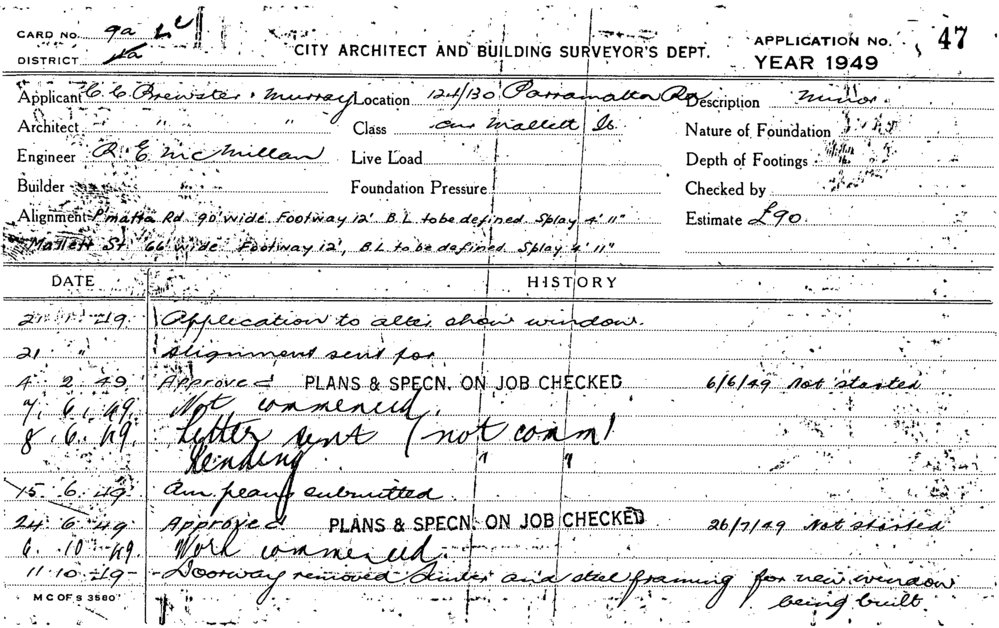 CARD NO. 9a LC
DISTRICT
CITY ARCHITECT AND BUILDING SURVEYOR'S DEPT.
APPLICATION NO. 47
YEAR 1949
Applicant C. C. Brewster & Murray Location 124/130 Parramatta Rd Description Minor
Architect " " Class cnr Mallett St. Nature of Foundation
Engineer R. E. McMillan Live Load Depth of Footings
Builder Foundation Pressure Checked by
Alignment P'matta Rd 90' wide Footway 12' B.L. to be defined Splay 4' 11" Estimate £90
Mallett St. 66' wide Footway 12', B.L. to be defined Splay 4' 11"
DATE HISTORY
21 1 49 Application to alter show window.
21 " Alignment sent for
4 2 49 Approved PLANS & SPECN. ON JOB CHECKED 6/6/49 Not started
7. 6. 49. Not commenced.
8. 6. 49. Letter sent (not comm)
Pending " "
15 6 49 Am plans submitted.
24 6 49 Approved PLANS & SPECN. ON JOB CHECKED 26/7/49 Not started
6. 10 49. Work commenced.
11 10 49 Doorway removed and steel framing for new window
being built.
M C OF S 3580